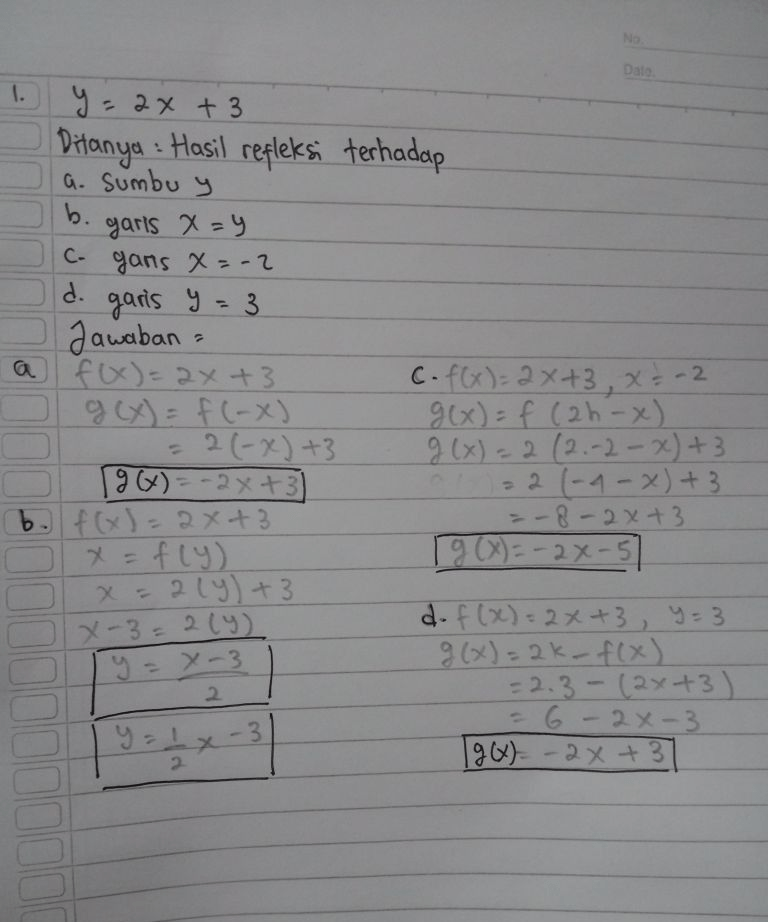 No.
Date.
1. y = 2x + 3
Ditanya : Hasil refleksi terhadap
a. Sumbu y
b. garis x = y
c. garis x = -2
d. garis y = 3
Jawaban =
a f(x) = 2x + 3
g(x) = f(-x)
= 2(-x) + 3
g(x) = -2x + 3
b. f(x) = 2x + 3
x = f(y)
x = 2(y) + 3
x - 3 = 2(y)
y = x - 3 / 2
y = 1/2 x - 3
c. f(x) = 2x + 3, x = -2
g(x) = f (2h - x)
g(x) = 2 (2. -2 - x) + 3
= 2 (-4 - x) + 3
= -8 - 2x + 3
g(x) = -2x - 5
d. f(x) = 2x + 3, y = 3
g(x) = 2k - f(x)
= 2.3 - (2x + 3)
= 6 - 2x - 3
g(x) = -2x + 3